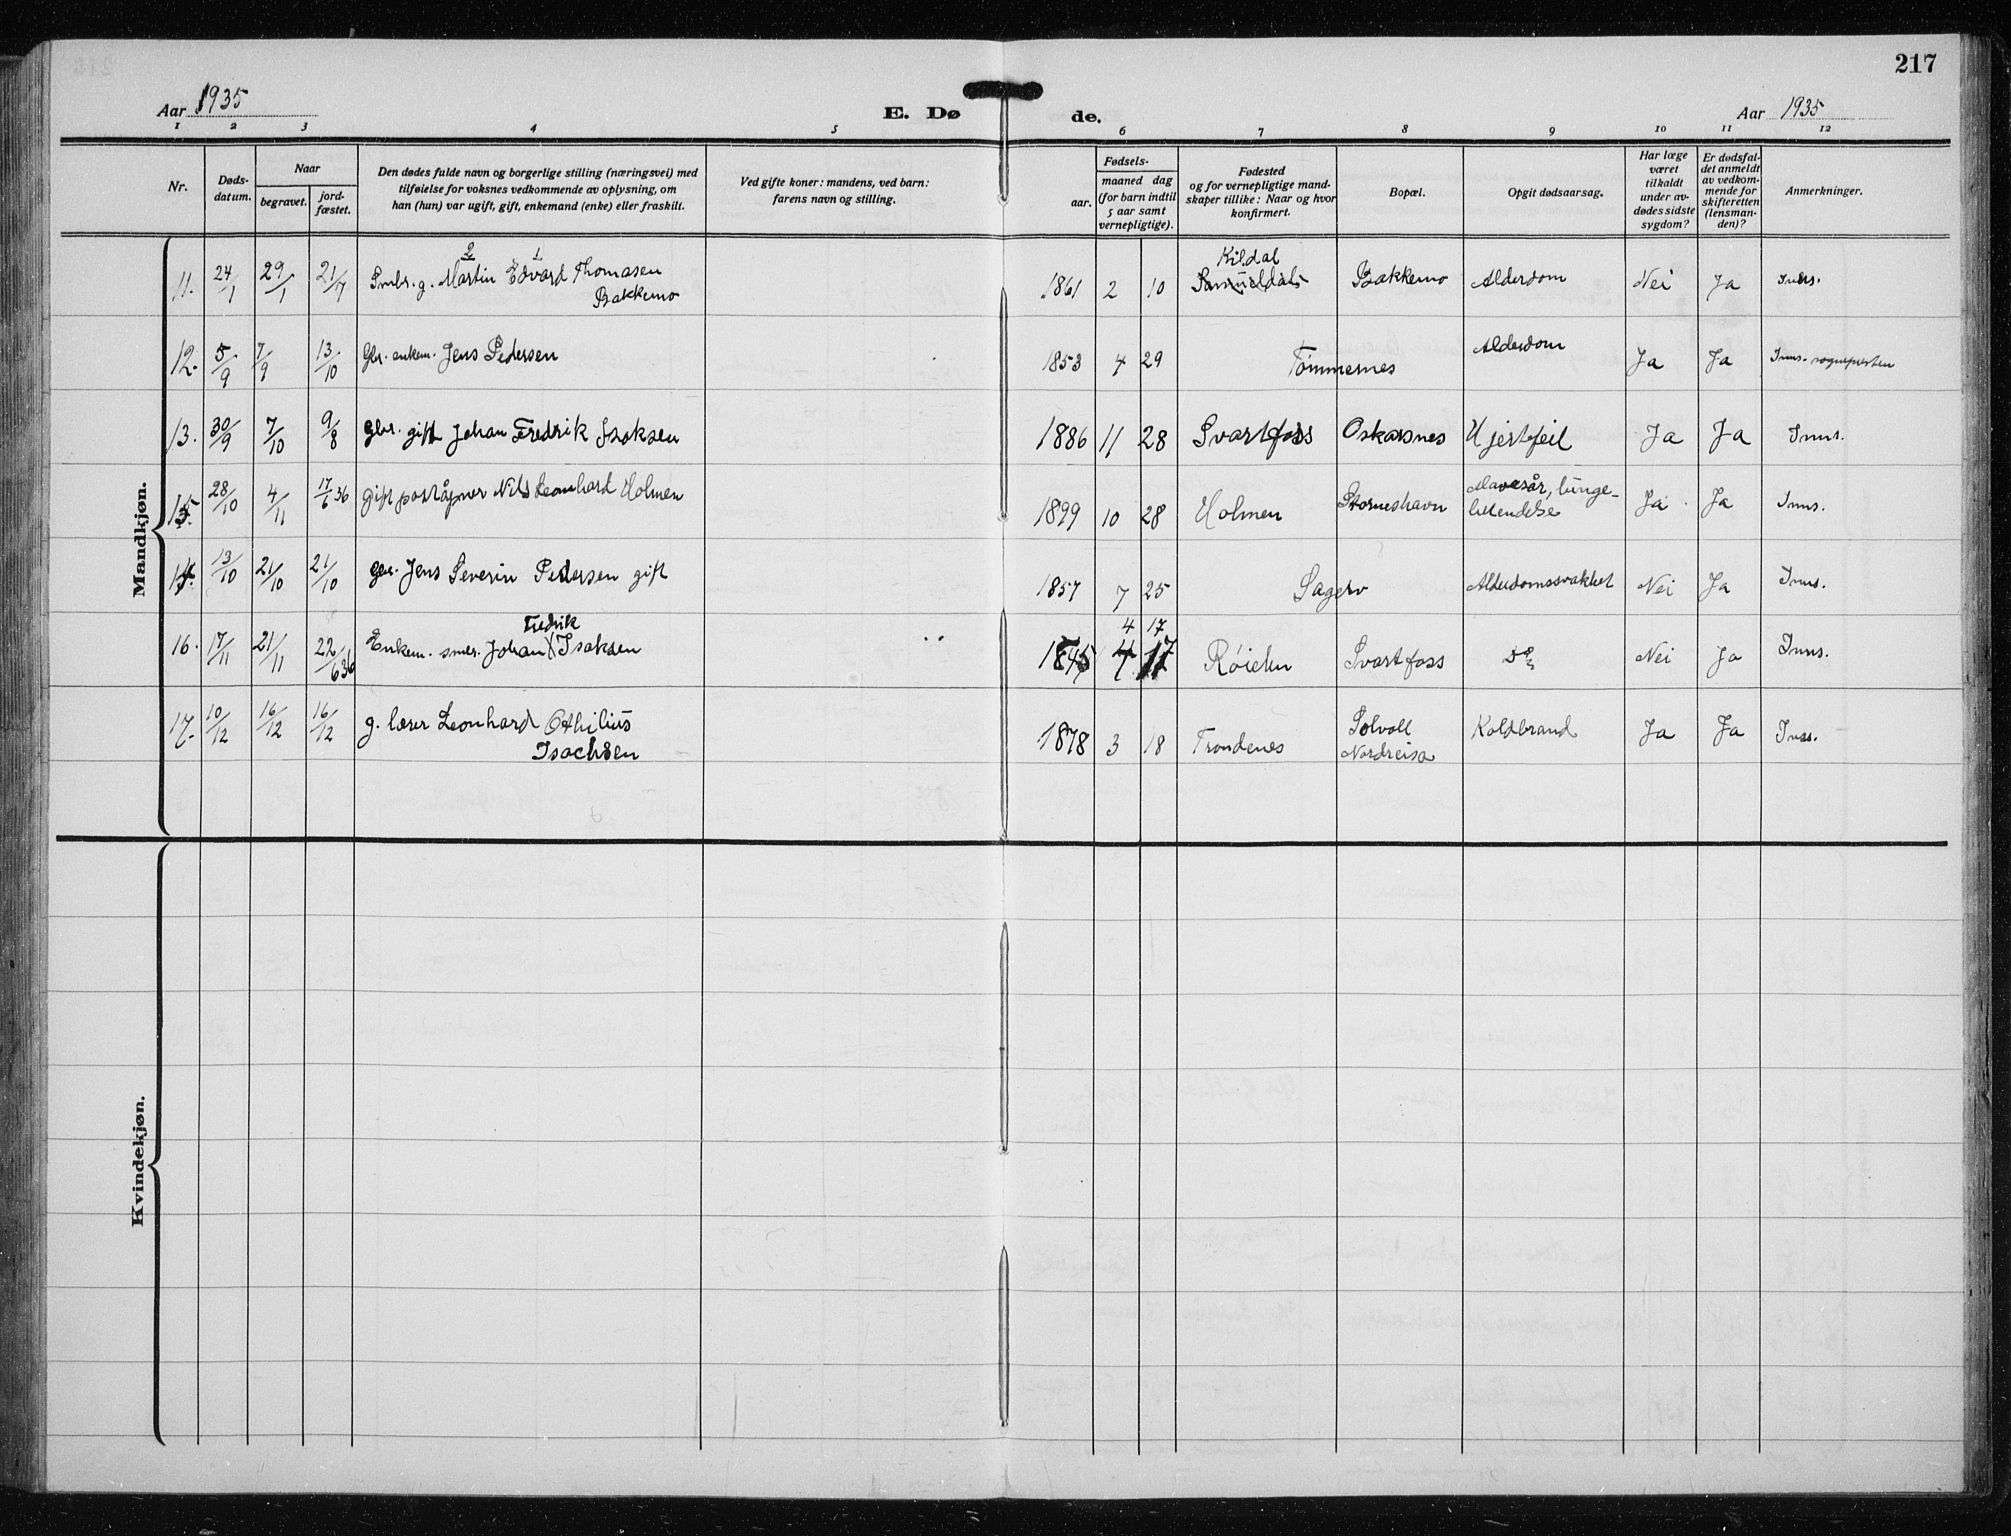 217
Aar 1935
E. Dø de.
Aar 1935
1 2 3 4 5 6 7 8 9 10 11 12
Nr.
Døds-
datum.
Naar
begravet.
jord-
fæstet.
Den dødes fulde navn og borgerlige stilling (næringsvei) med
tilføielse for voksnes vedkommende av oplysning, om
han (hun) var ugift, gift, enkemand (enke) eller fraskilt.
Ved gifte koner: mandens, ved barn:
farens navn og stilling.
Fødsels-
aar.
maaned dag
(for barn indtil
5 aar samt
vernepligtige).
Fødested
og for vernepligtige mand-
skaper tillike: Naar og hvor
konfirmert.
Bopæl.
Opgit dødsaarsag.
Har læge
været
tilkaldt
under av-
dødes sidste
sygdom?
Er dødsfal-
det anmeldt
av vedkom-
mende for
skifteretten
(lensman-
den)?
Anmerkninger.
Mandkjøn.
2 1 Kildal
11. 24/1 29/1 21/7 Smbr. g. Martin Edvard Thomasen 1861 2 10 Samueldal Bakkemo Alderdom Nei Ja Inns.
Bakkemo
12. 5/9 7/9 13/10 Gbr. enkem. Jens Pedersen 1853 4 29 Tømmernes Alderdom Ja Ja Inns. sognepresten
13. 30/9 7/10 9/8 gbr. gift Johan Fredrik Isaksen 1886 11 28 Svartfoss Oskarsnes Hjertefeil Ja Ja Inns.
15. 28/10 4/11 17/6 36 gift poståpner Nils Leonhard Holmen 1899 10 28 Holmen Storneshavn Mavesår, lunge-
betendelse Ja Ja Inns.
14. 13/10 21/10 21/10 gbr. Jens Severin Pedersen gift 1857 7 25 Sagelv Alderdomssvakhet Nei Ja Inns.
Fredrik 4 17
16. 17/11 21/11 22/6 36 Enkem. Johan Isaksen 1845 Røielen Svartfoss Do Nei Ja Inns.
17. 10/12 16/12 16/12 g. lærer Leonhard Othilius 1878 3 18 Trondenes Solvoll Koldbrand Ja Ja Inns.
Isachsen Nordreisa
Kvindekjøn.